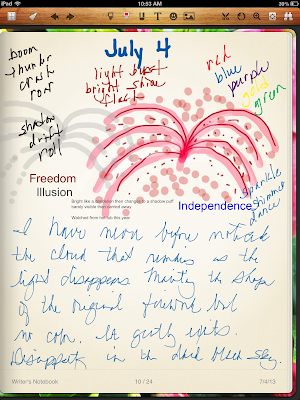 iPad
10:53 AM
39%
July 4
boom
thunder
crack
roar
shadow
drift
roll
light burst
bright shine
flash
red
blue
purple
gold
green
Freedom
Illusion
Independence
sparkle
shimmer
dance
Bright like a dandelion then changes to a shadow puff
barely visible then carried away
Watched from hot tub this year
I have never before noticed
the cloud that remains as the
light disappears. Mainly the shape
of the original firework but
no color. It exits.
Disappears in the dark black sky.
Writer's Notebook
10 / 24
7/4/13